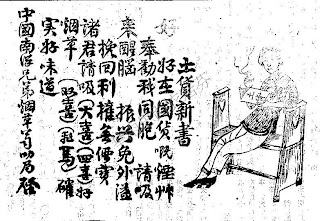 土貨新書
好
好在國貨嘅烟艸
奉勸同胞 請吸
藥醒腦 振興免外溢
挽回利權
諸君請吸(大喜)(四喜)好
烟草(双喜)(飛馬)確
實好味道
中國南洋兄弟烟草公司